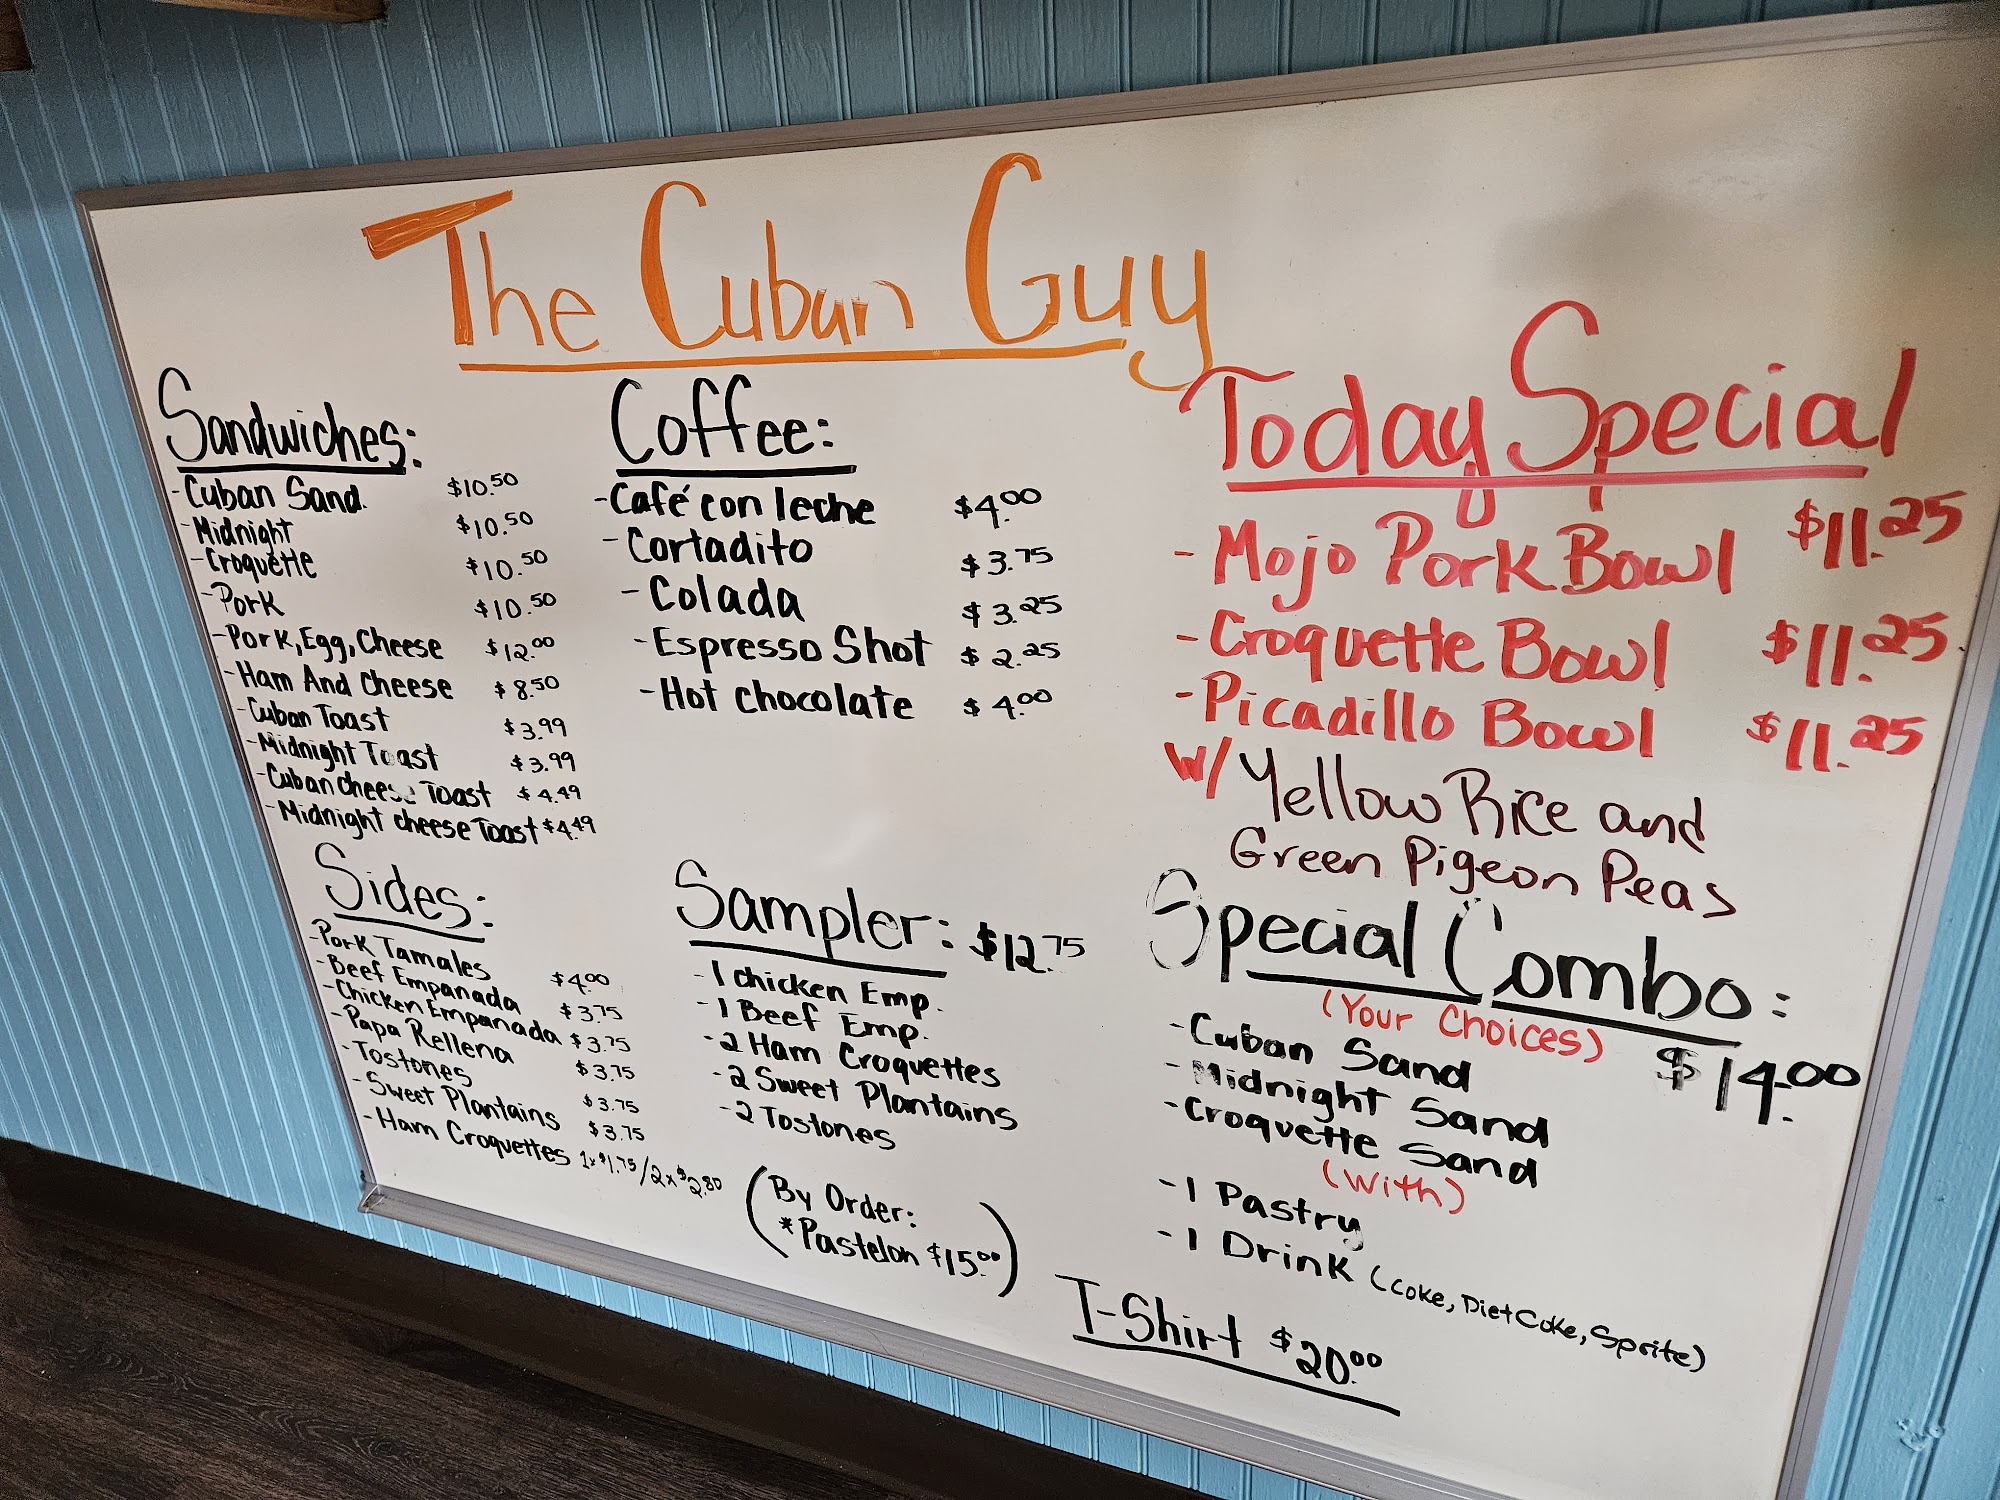 The Cuban Guy
Sandwiches:
-Cuban Sand. $10.50
-Midnight $10.50
-Croquette $10.50
-Pork $10.50
-Pork, Egg, Cheese $12.00
-Ham And Cheese $8.50
-Cuban Toast $3.99
-Midnight Toast $3.99
-Cuban cheese Toast $4.49
-Midnight cheese Toast $4.49
Coffee:
-Café con leche $4.00
-Cortadito $3.75
-Colada $3.25
-Espresso Shot $2.25
-Hot chocolate $4.00
Today Special
-Mojo Pork Bowl $11.25
-Croquette Bowl $11.25
-Picadillo Bowl $11.25
W/ Yellow Rice and
Green Pigeon Peas
Sides:
-Pork Tamales $4.00
-Beef Empanada $3.75
-Chicken Empanada $3.75
-Papa Rellena $3.75
-Tostones $3.75
-Sweet Plantains $3.75
-Ham Croquettes 1x$1.75/2x$2.80
Sampler: $12.75
-1 chicken Emp.
-1 Beef Emp.
-2 Ham Croquettes
-2 Sweet Plantains
-2 Tostones
(By Order:
*Pastelon $15.00)
Special Combo:
(Your Choices) $14.00
-Cuban Sand
-Midnight Sand
-Croquette Sand
(With)
-1 Pastry
-1 Drink (Coke, Diet Coke, Sprite)
T-Shirt $20.00